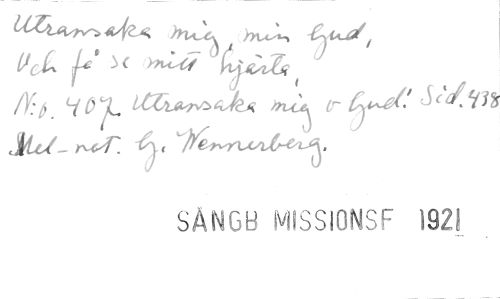 Utransaka mig, min Gud,
Och få se mitt hjärta,
N:o. 407. Utransaka mig o Gud! Sid. 438
Mel-not. G. Wennerberg.
SÅNGB MISSIONSF 1921